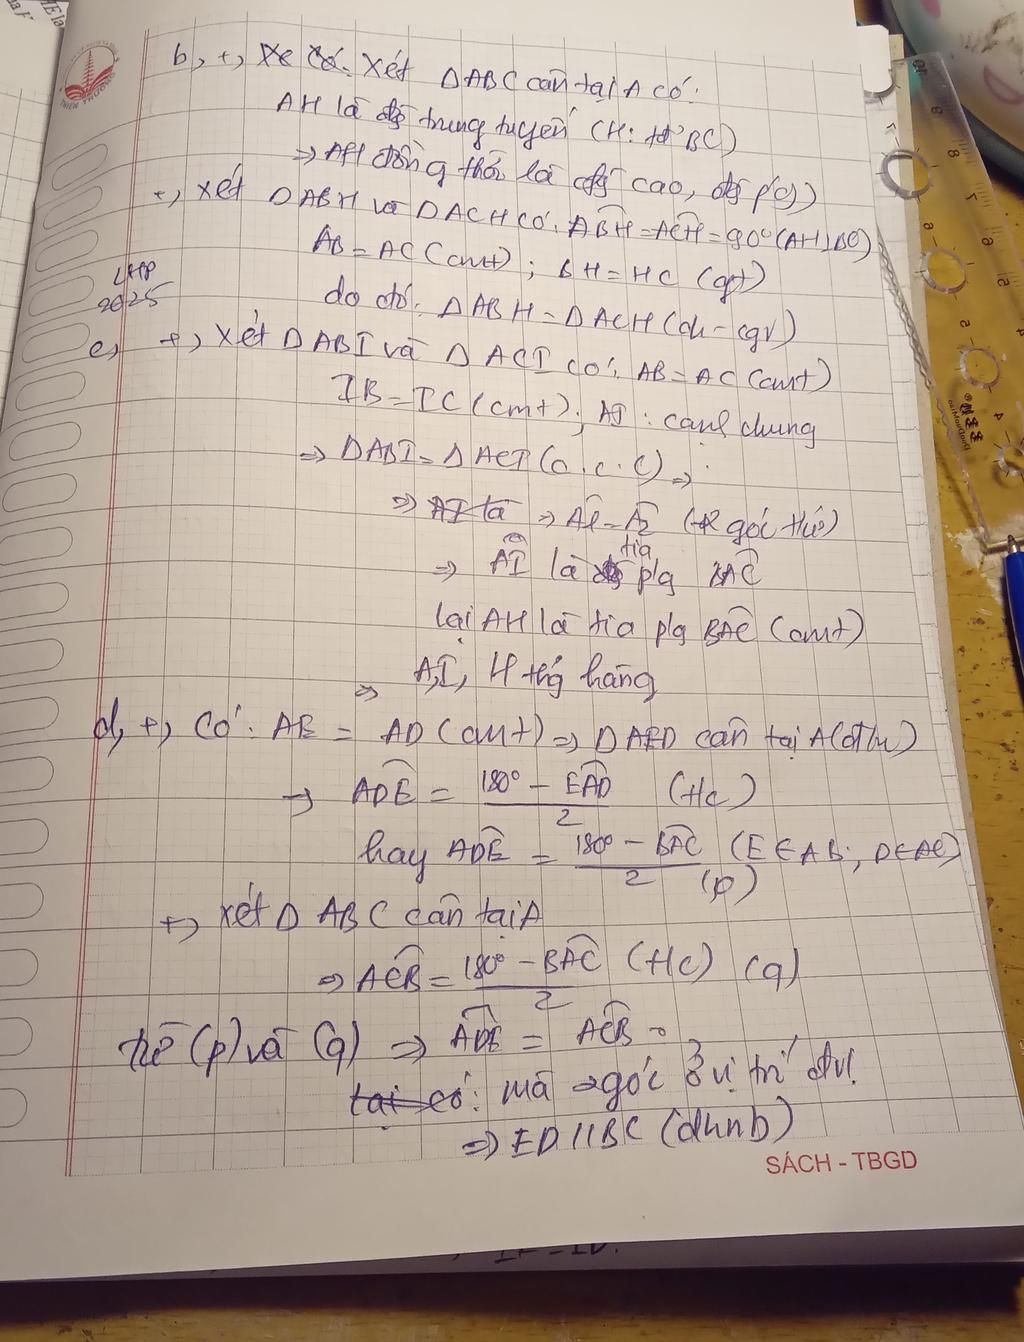 b, +, Xe Có: Xét ΔABC cân tại A có:
AH là đg trung tuyến (H: tđ BC)
⇒ AH đồng thời là đg cao, đg p/g)
+, Xét ΔABH và ΔACH có: ABH = ACH = 90° (AH⊥BC)
AB = AC (cmt) ; BH = HC (gt)
do đó: ΔABH = ΔACH (ch - cgv)
LHP
2025
c, +, Xét ΔABI và ΔACI có: AB = AC (cmt)
IB = IC (cmt); AI: cạnh chung
⇒ ΔABI = ΔACI (c.c.c) ⇒
⇒ AI là ⇒ A1 = A2 (2 góc t/ứ)
⇒ AI là đg tia p/g BAC
lại AH là tia p/g BAC (cmt)
⇒ A, I, H thg hàng
d, +, Có: AE = AD (cmt) ⇒ ΔAED cân tại A (đ/n)
→ ADE = 180° - EAD / 2 (t/c)
hay ADE = 180° - BAC / 2 (E ∈ AB; D ∈ AC) (p)
+, Xét Δ ABC cân tại A
⇒ ACB = 180° - BAC / 2 (t/c) (q)
từ (p) và (q) ⇒ ADE = ACB
tại có: mà 2 góc ở vị trí đ.vị
⇒ ED // BC (dhnb)
SÁCH - TBGD